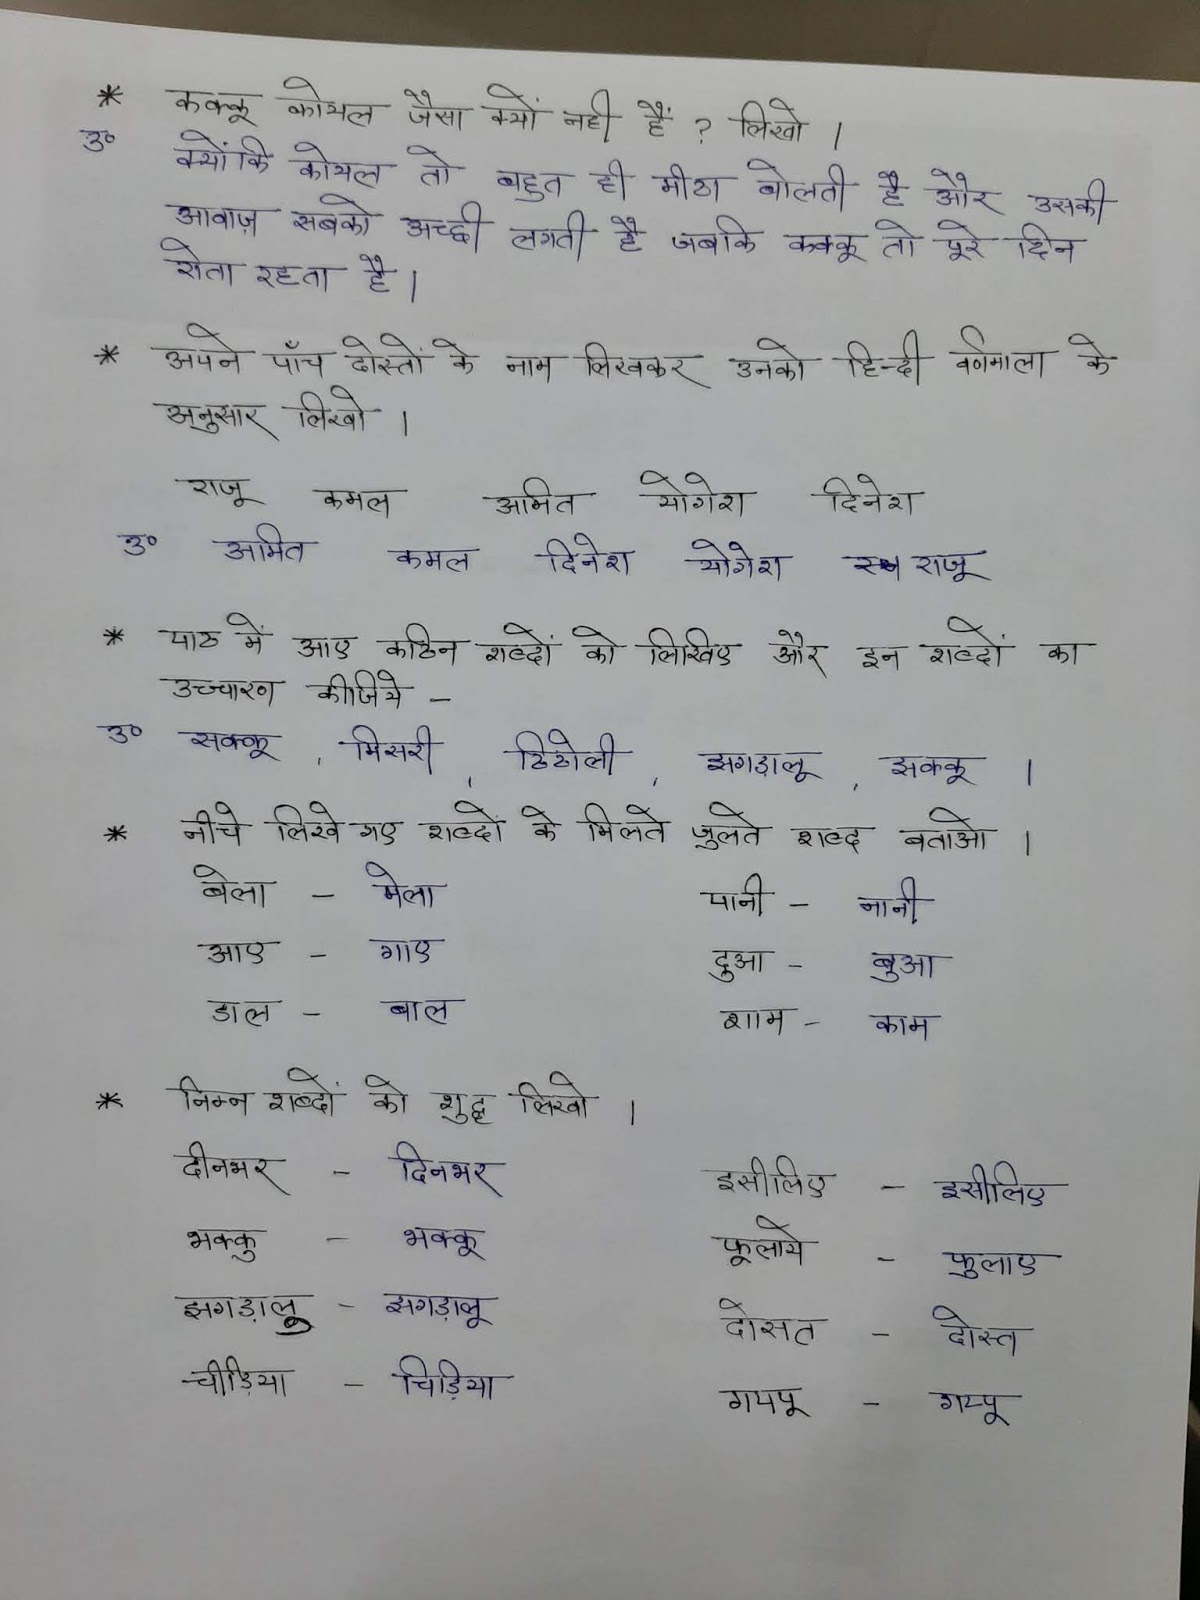 * कक्कू कोयल जैसा क्यों नही हैं ? लिखो ।
उ० क्योंकि कोयल तो बहुत ही मीठा बोलती है और उसकी
आवाज़ सबको अच्छी लगती है जबकि कक्कू तो पूरे दिन
रोता रहता है ।
* अपने पाँच दोस्तों के नाम लिखकर उनको हिन्दी वर्णमाला के
अनुसार लिखो ।
राजू कमल अमित योगेश दिनेश
उ० अमित कमल दिनेश योगेश राजू
* पाठ में आए कठिन शब्दों को लिखिए और इन शब्दों का
उच्चारण कीजिये –
उ० सक्कू , मिसरी , ठिठोली , झगड़ालू , झक्कू ।
* नीचे लिखे गए शब्दों के मिलते जुलते शब्द बताओ ।
बेला – मेला पानी – नानी
आए – गाए दुआ – बुआ
डाल – बाल शाम – काम
* निम्न शब्दों को शुद्ध लिखो ।
दीनभर – दिनभर इसीलिए – इसीलिए
भक्कु – भक्कू फूलाये – फुलाए
झगड़ालु – झगड़ालू दोसत – दोस्त
चीड़िया – चिड़िया गपपू – गप्पू